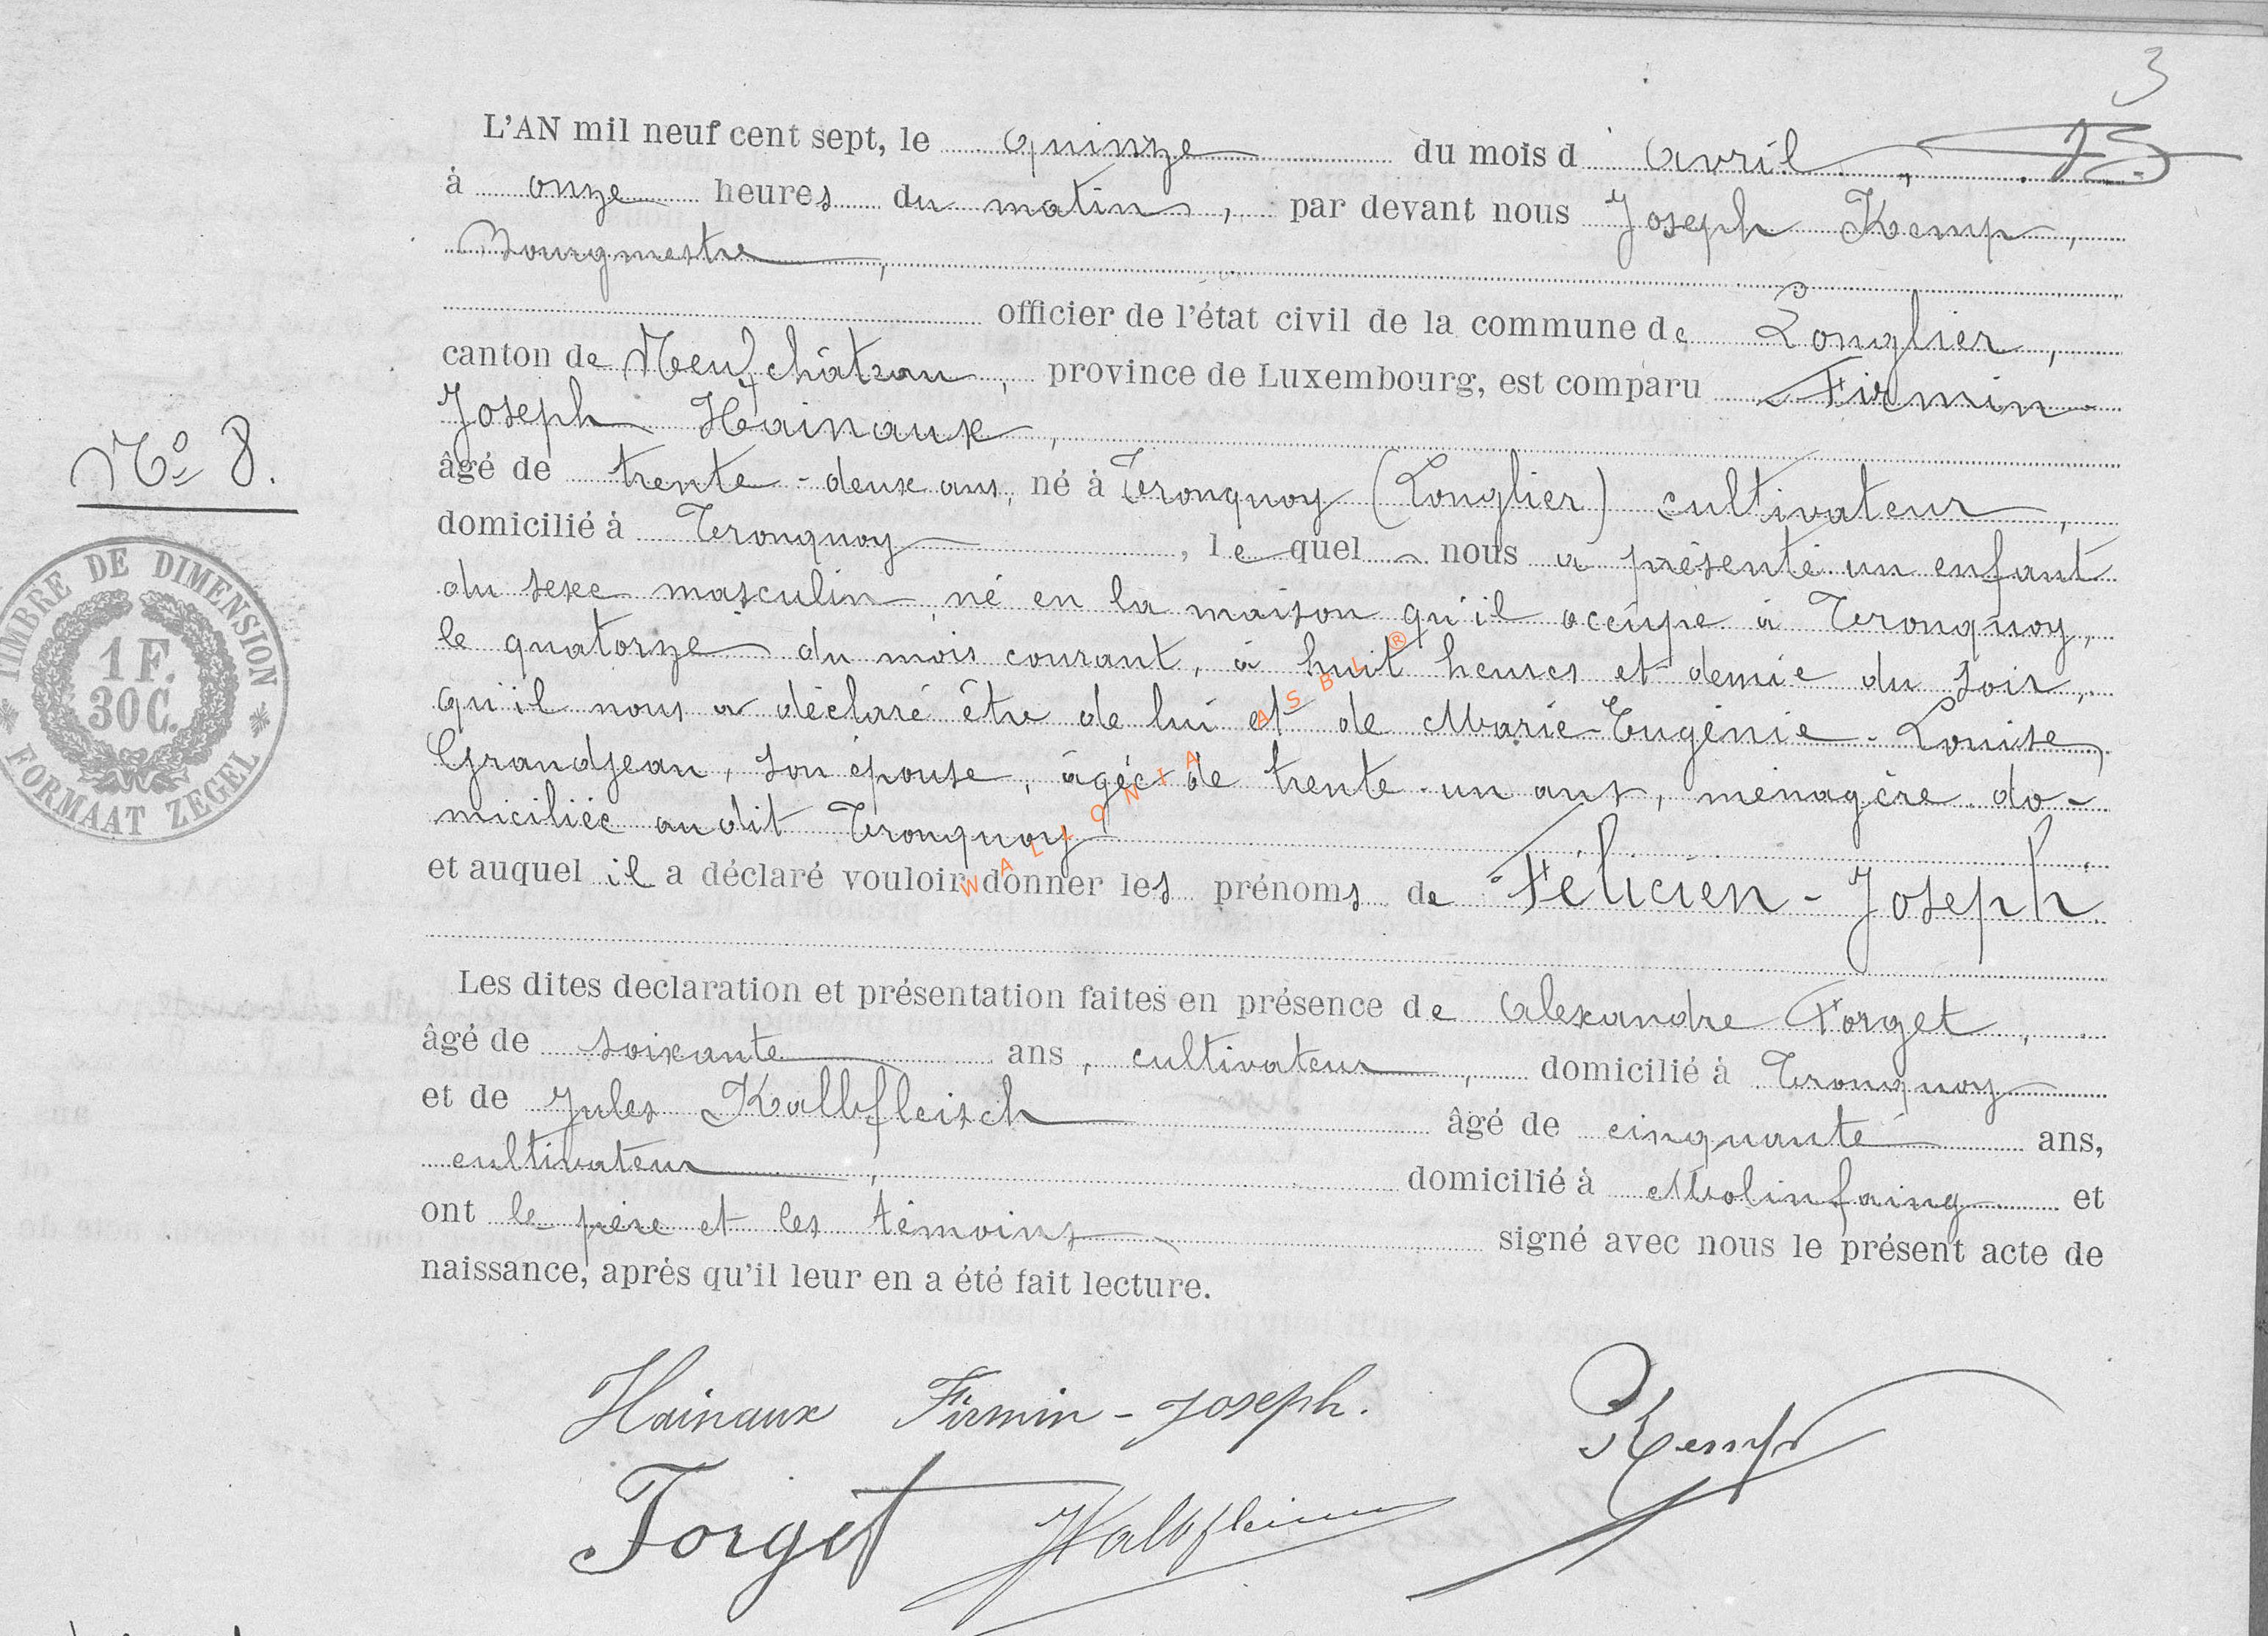 3
L'AN mil neuf cent sept, le quinze du mois d'avril,
à onze heures du matin, par devant nous Joseph Kemp,
Bourgmestre,
officier de l'état civil de la commune de Longlier,
canton de Neufchâteau, province de Luxembourg, est comparu Firmin
Joseph Hainaux,
âgé de trente-deux ans, né à Tronquoy (Longlier) cultivateur,
domicilié à Tronquoy, lequel nous a présenté un enfant
du sexe masculin, né en la maison qu'il occupe à Tronquoy,
le quatorze du mois courant, à huit heures et demie du soir,
qu'il nous a déclaré être de lui et de Marie-Eugénie-Louise
Grandjean, son épouse, âgée de trente-un ans, ménagère do-
miciliée audit Tronquoy
et auquel il a déclaré vouloir donner les prénoms de Félicien-Joseph
Les dites declaration et présentation faites en présence de Alexandre Forget,
âgé de soixante ans, cultivateur, domicilié à Tronquoy
et de Jules Kalbfleisch âgé de cinquante ans,
cultivateur, domicilié à Molinfaing et
ont le père et les témoins signé avec nous le présent acte de
naissance, après qu'il leur en a été fait lecture.
Hainaux Firmin-Joseph.
Kemp
Forget
Kalbfleisch
No 8.
TIMBRE DE DIMENSION
1 F.
30 C.
FORMAAT ZEGEL
WALLONIA ASBL ®